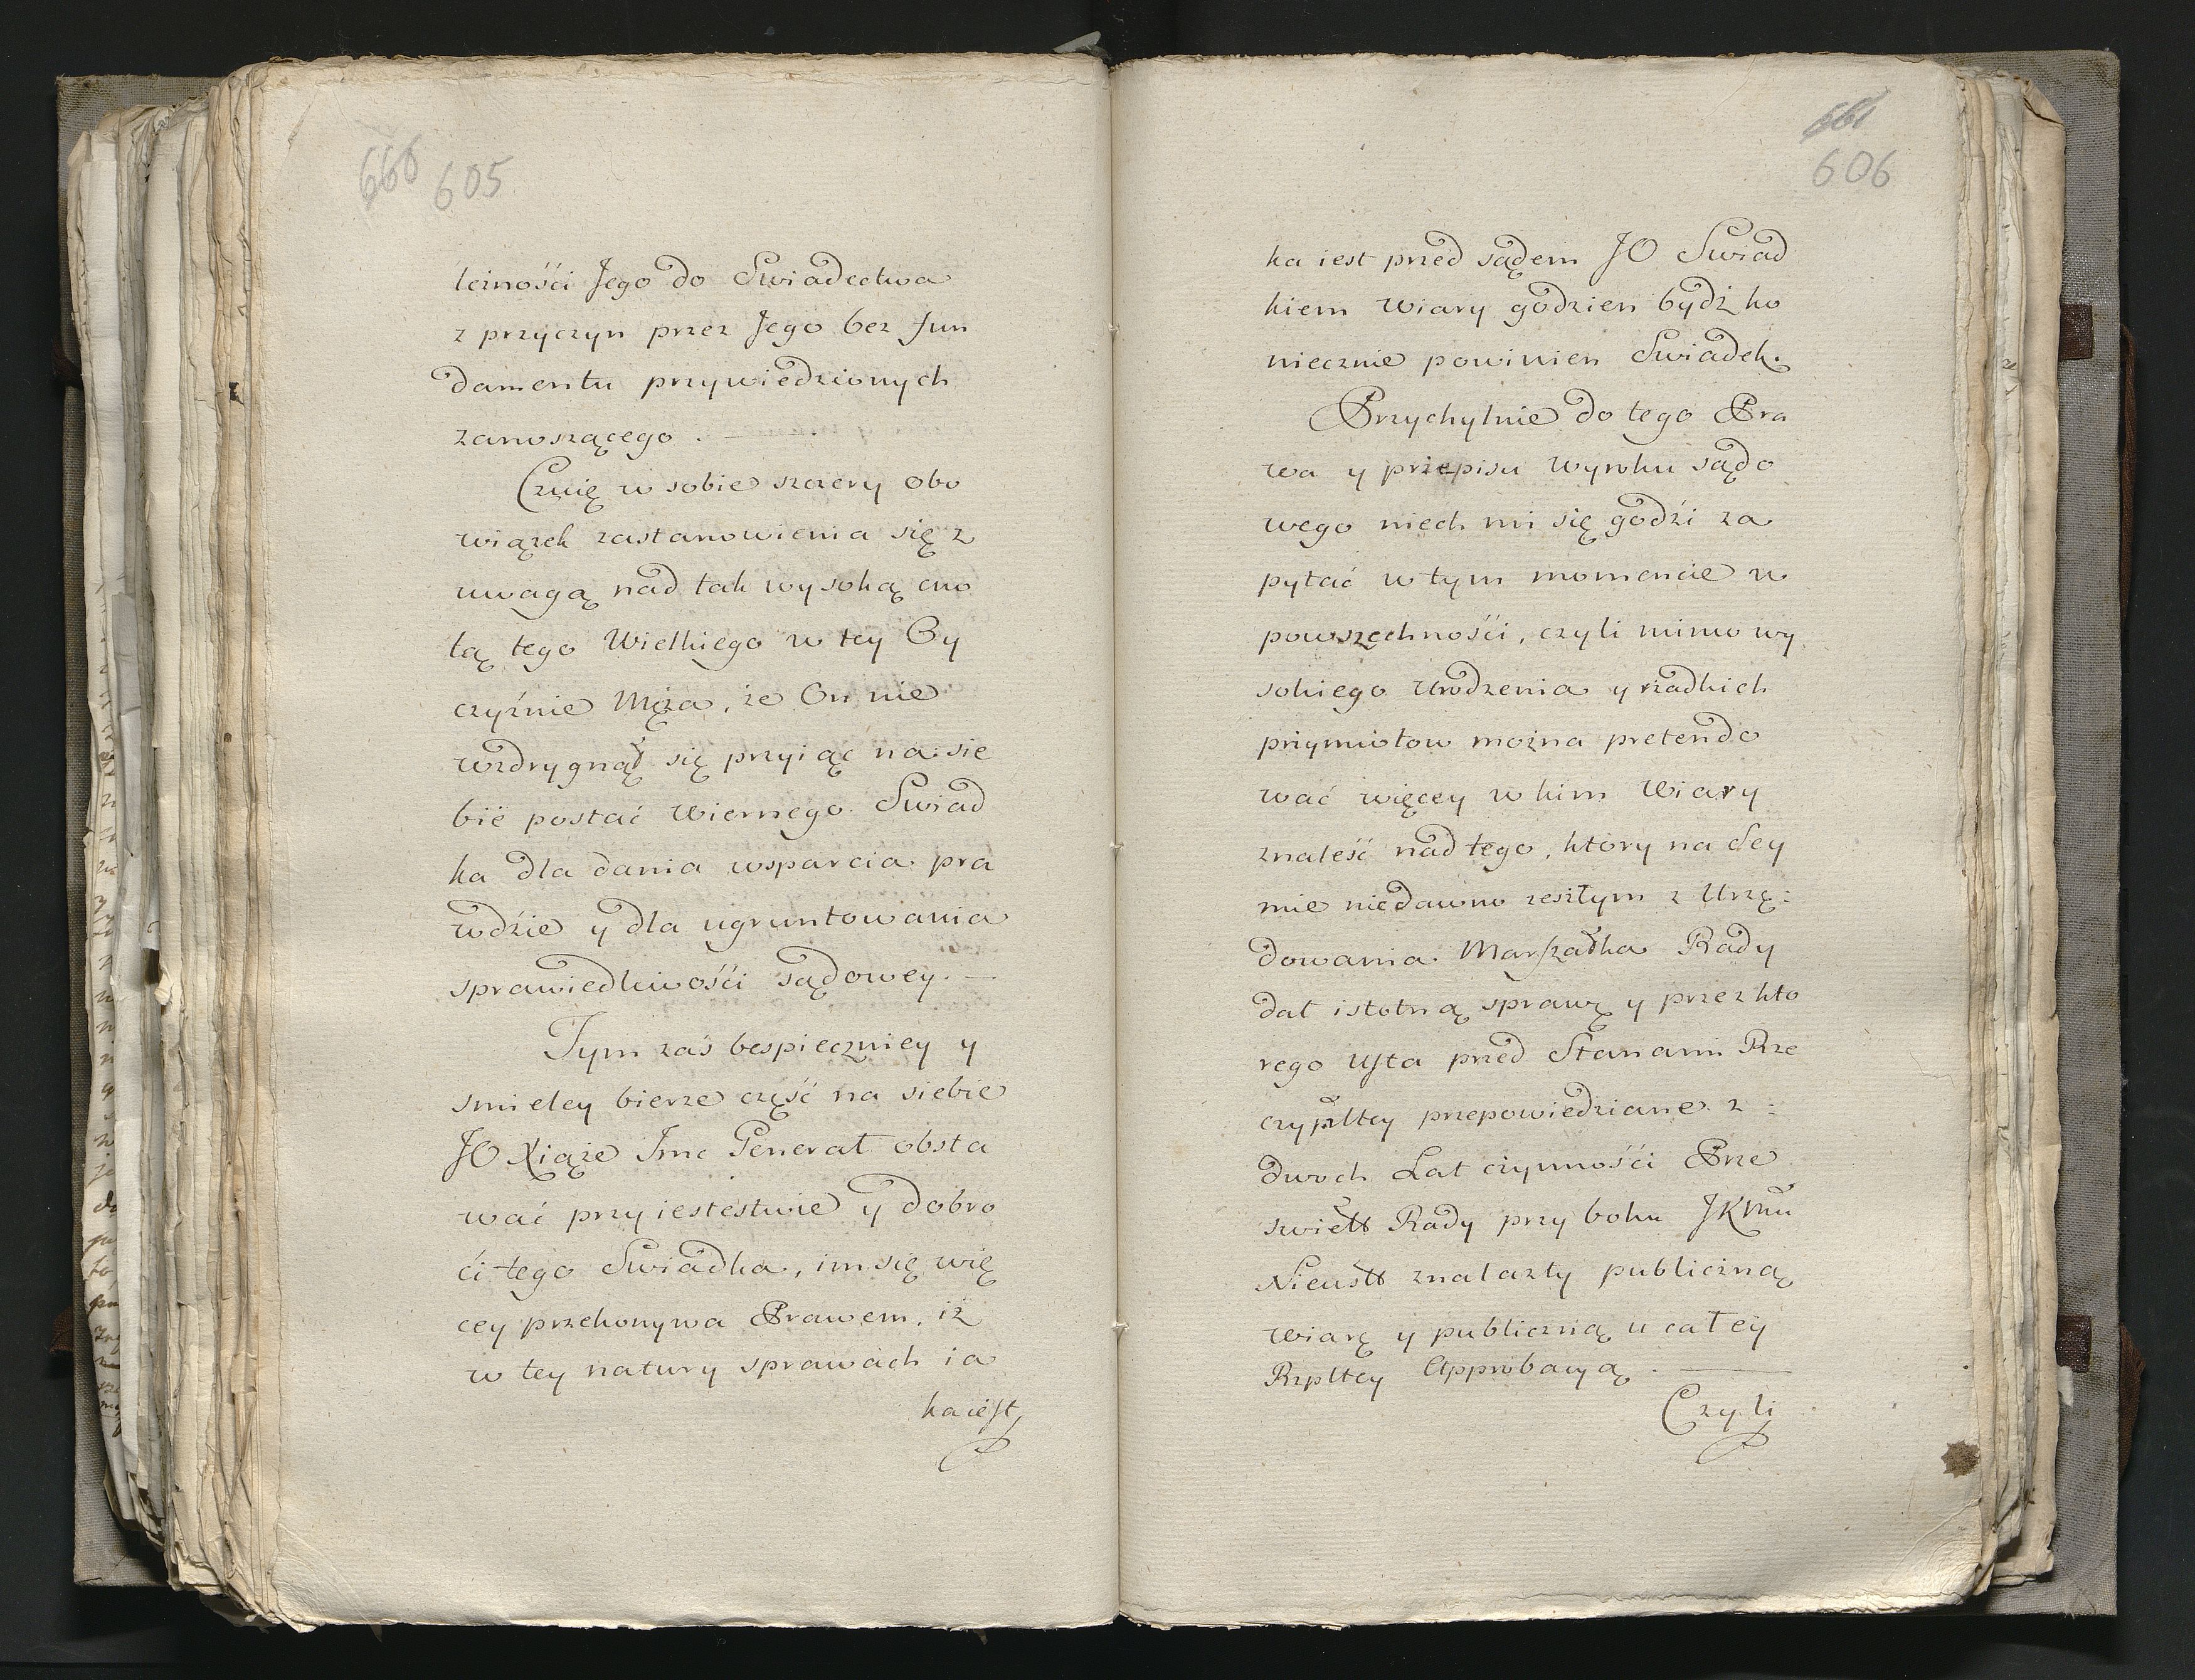 660 605
lciności Jego do Swiadectwa
z przyczyn przez Jego bez fun
damentu przywiedzionych
zanoszącego. —
Czuię w sobie szczery obo
wiązek zastanowienia się z
uwagą nad tak wysoką cno
tą tego Wielkiego w tey Oy
czyźnie Męża, że On nie
wzdrygnął się przyiąć na sie
bie postać Wiernego Swiad
ka dla dania wsparcia pra
wdzie y dla ugruntowania
sprawiedliwości sądowey. —
Tym zaś bespieczniey y
smieley bierze część na siebie
JO Xiąże Jmc Generał obsta
wać przy iestestwie y dobro
ci tego Swiadka, im się wię
cey przekonywa Prawem, iż
w tey natury sprawach ia
ka iest
661
606
ka iest przed sądem JO Swiad
kiem Wiary godzien bydź ko
niecznie powinien Swiadek.
Przychylnie do tego Pra
wa y przepisu Wyroku sądo
wego niech mi się godzi za
pytać w tym momencie w
powszechności, czyli mimo wy
sokiego Urodzenia y rzadkich
przymiotow można pretendo
wać więcey w kim Wiary
znaleść nad tego, ktory na Sey
mie niedawno zeszłym z Urzę:
dowania Marszałka Rady
dał istotną sprawę y przez kto
rego Usta przed Stanami Rze
czypltey przepowiedziane z:
dwoch Lat czynności Prze
swiett Rady przy boku JKMci
Nieustt znalazły publiczną
Wiarę y publiczną u całey
Rzpltey Approbacyą. —
Czyli